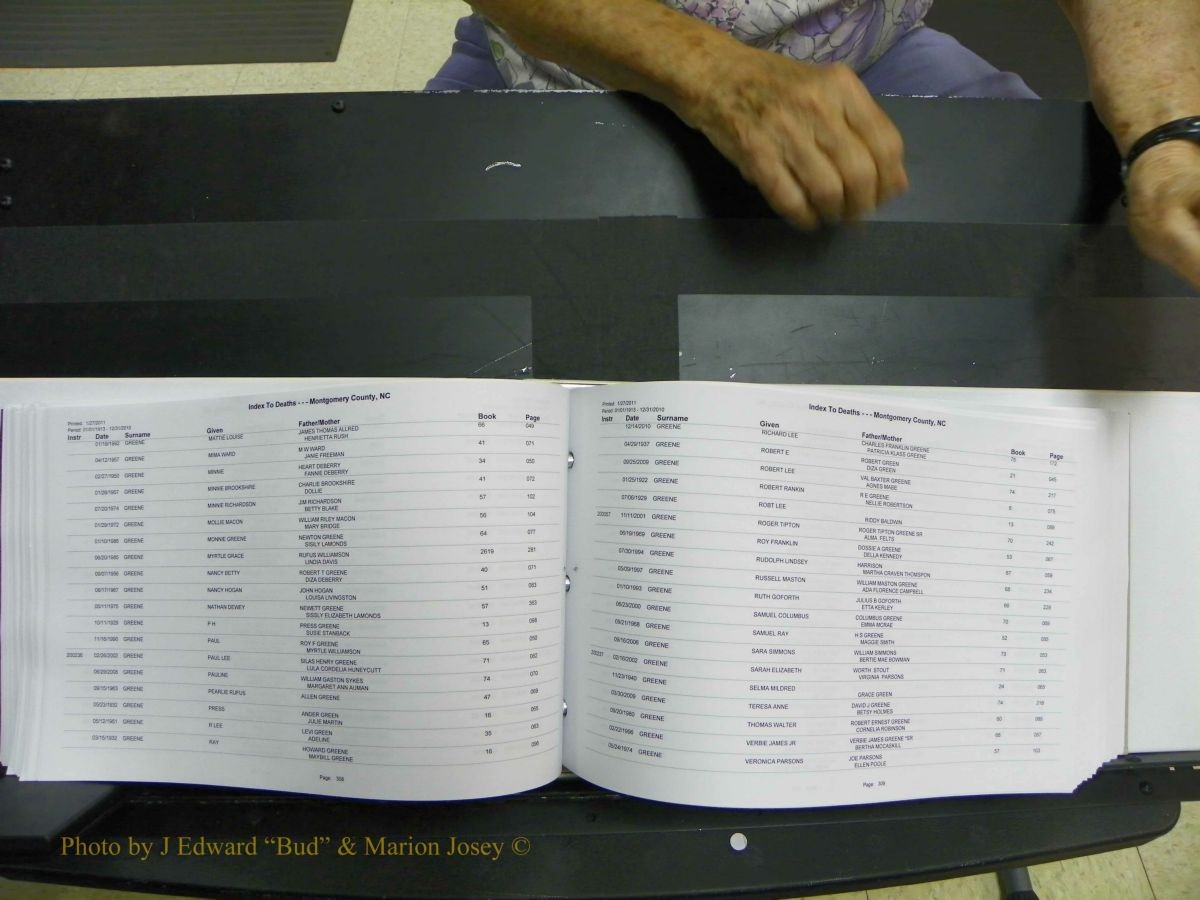 Index To Deaths - - - Montgomery County, NC
Printed: 1/27/2011
Period: 01/01/1913 - 12/31/2010
Instr Date Surname Given Father/Mother Book Page
01/19/1992 GREENE MATTIE LOUISE JAMES THOMAS ALLRED 66 049
HENRIETTA RUSH
04/12/1957 GREENE MIMA WARD M W WARD 41 071
JANIE FREEMAN
02/27/1950 GREENE MINNIE HEART DEBERRY 34 050
FANNIE DEBERRY
01/28/1957 GREENE MINNIE BROOKSHIRE CHARLIE BROOKSHIRE 41 072
DOLLIE
07/20/1974 GREENE MINNIE RICHARDSON JIM RICHARDSON 57 102
BETTY BLAKE
01/29/1972 GREENE MOLLIE MACON WILLIAM RILEY MACON 56 104
MARY BRIDGE
01/10/1986 GREENE MONNIE GREENE NEWTON GREENE 64 077
SISILY LAMONDS
GREENE MYRTLE GRACE RUFUS WILLIAMSON 2619 281
LINDIA DAVIS
GREENE NANCY BETTY ROBERT T GREENE 40 071
DIZA DEBERRY
GREENE NANCY HOGAN JOHN HOGAN 51 083
LOUISA LIVINGSTON
GREENE NATHAN DEWEY NEWETT GREENE 57 363
SISSLY ELIZABETH LAMONDS
10/11/1929 GREENE P H PRESS GREENE 13 098
SUSIE STANBACK
GREENE PAUL ROY F GREENE 65 050
MYRTLE WILLIAMSON
200236 02/26/2002 GREENE PAUL LEE SILAS HENRY GREENE 71 062
LULA CORDELIA HUNEYCUTT
GREENE PAULINE WILLIAM GASTON SYKES 74 070
MARGARET ANN AUMAN
GREENE PEARLIE RUFUS ALLEN GREENE 47 069
GREENE PRESS ANDER GREEN 16 095
JULIE MARTIN
05/12/1951 GREENE R LEE LEVI GREEN 35 063
ADELINE
03/15/1932 GREENE RAY HOWARD GREENE 16 096
MAYBILL GREENE
Page: 308
Index To Deaths - - - Montgomery County, NC
Printed: 1/27/2011
Period: 01/01/1913 - 12/31/2010
Instr Date Surname Given Father/Mother Book Page
12/14/2010 GREENE RICHARD LEE CHARLES FRANKLIN GREENE 75 172
PATRICIA KLASS GREENE
04/29/1937 GREENE ROBERT E ROBERT GREEN 21 045
DIZA GREEN
09/25/2009 GREENE ROBERT LEE VAL BAXTER GREENE 74 217
AGNES MABE
01/25/1922 GREENE ROBERT RANKIN R E GREENE 6 075
NELLIE ROBERTSON
07/06/1929 GREENE ROBT LEE 13 099
RIDDY BALDWIN
200057 11/11/2001 GREENE ROGER TIPTON ROGER TIPTON GREENE SR 70 242
ALMA FELTS
06/19/1969 GREENE ROY FRANKLIN DOSSIE A GREENE 53 067
DELLA KENNEDY
07/30/1994 GREENE RUDOLPH LINDSEY HARRISON 67 059
MARTHA CRAVEN THOMSPON
05/09/1997 GREENE RUSSELL MASTON WILLIAM MASTON GREENE 68 234
ADA FLORENCE CAMPBELL
01/10/1993 GREENE RUTH GOFORTH JULIUS B GOFORTH 66 228
ETTA KERLEY
GREENE SAMUEL COLUMBUS COLUMBUS GREENE
EMMA MCRAE
09/21/1968 GREENE SAMUEL RAY H S GREENE 52
MAGGIE SMITH
GREENE SARA SIMMONS WILLIAM SIMMONS 73 053
BERTIE MAE BOWMAN
200237 02/16/2002 GREENE SARAH ELIZABETH WORTH STOUT 71 063
VIRGINIA PARSONS
11/23/1940 GREENE SELMA MILDRED 24 065
GRACE GREEN
03/30/2009 GREENE TERESA ANNE DAVID J GREENE 74 218
BETSY HOLMES
09/20/1980 GREENE THOMAS WALTER ROBERT ERNEST GREENE 60
CORNELIA ROBINSON
02/22/1996 GREENE VERBIE JAMES JR VERBIE JAMES GREENE "SR 68 067
BERTHA MCCASKILL
05/24/1974 GREENE VERONICA PARSONS JOE PARSONS 57 103
ELLEN POOLE
Page: 309
Photo by J Edward "Bud" & Marion Josey ©